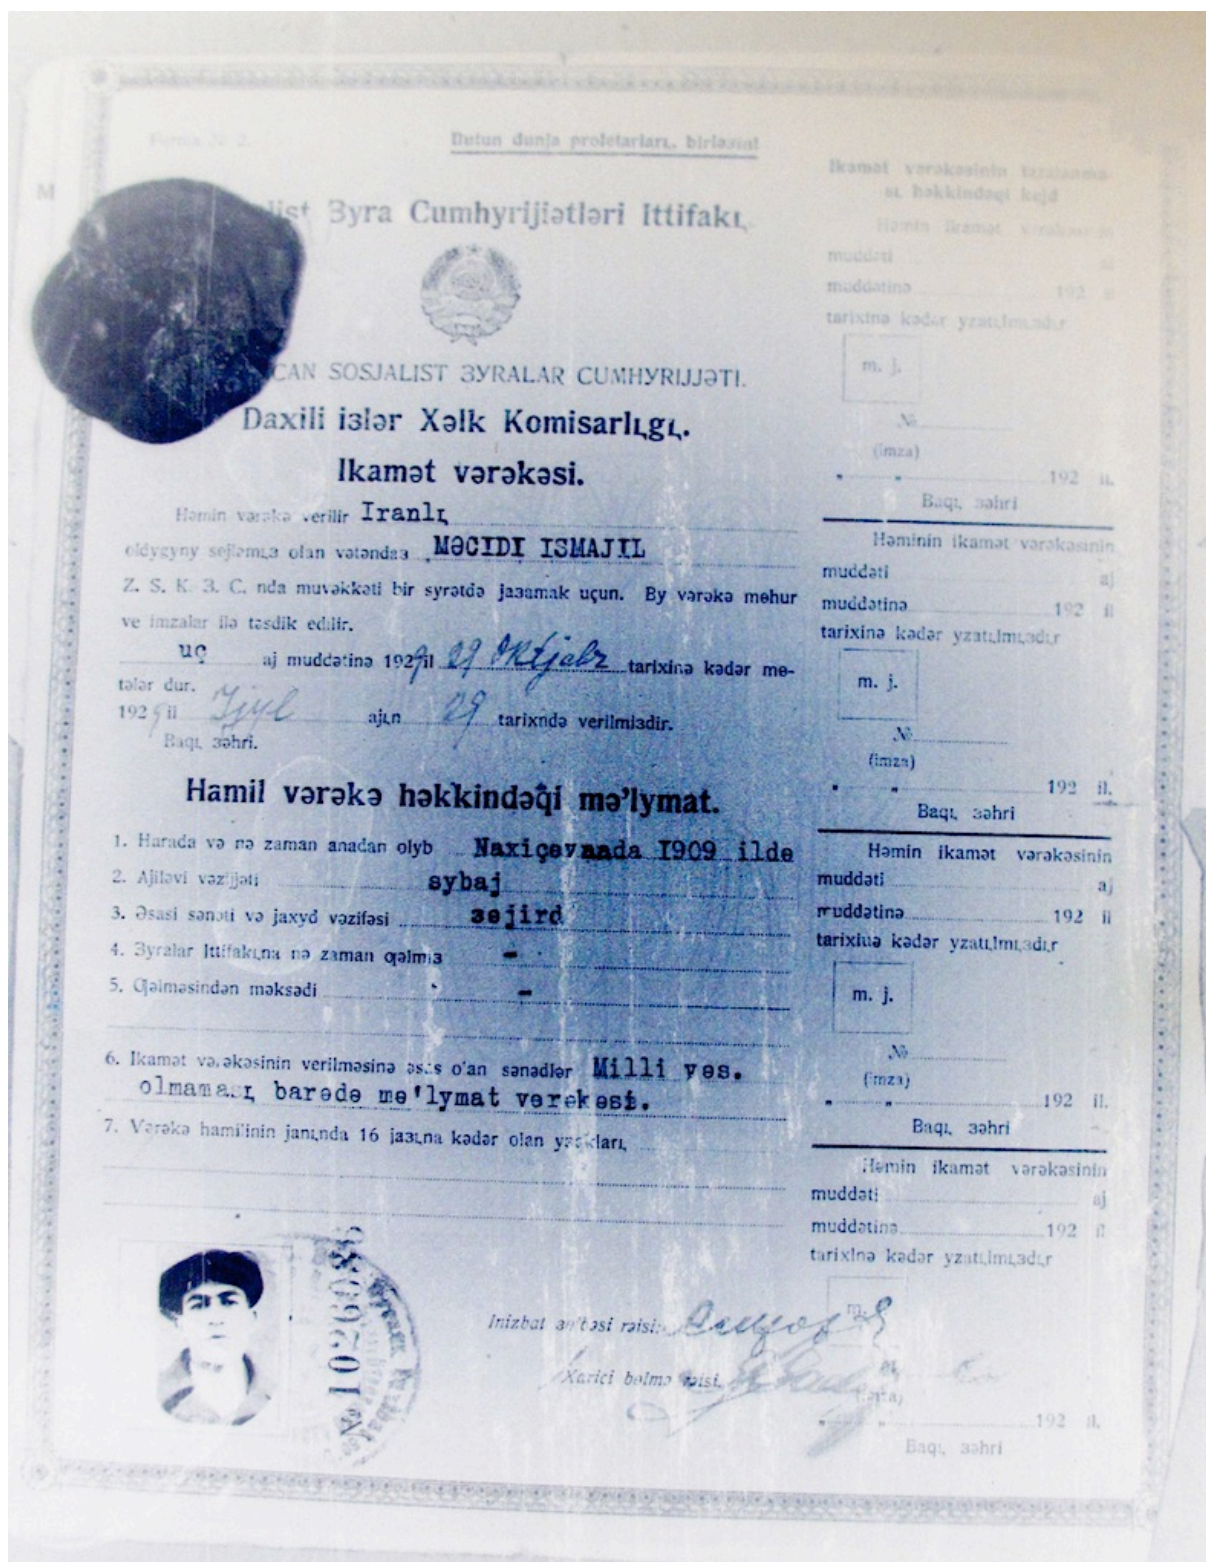 Forma № 2.
Butun dunja proletarları, birləşin!
M
Зyra Cumhyrijiətləri Ittifakı,
CAN SOSJALIST ЗYRALAR CUMHYRIJJƏTI.
Daxili iзlər Xəlk Komisarlıgı.
Ikamət vərəkəsi.
Həmin vərəkə verilir Iranlı
oldygyny sejləmiз olan vətəndaз MƏCIDI ISMAJIL
Z. S. K. З. C. nda muvəkkəti bir syrətdə jaзamak uçun. By vərəkə məhur
ve imzalar ilə təsdik edilir.
uç aj muddətinə 1929 il 29 Oktjabr tarixinə kədər me-
təlǝr dur.
1929 il Ijyl ajın 29 tarixndə verilmiзdir.
Baqı зəhri.
Hamil vərəkə həkkindəqi mə'lymat.
1. Harada və nə zaman anadan olyb Naxiçevanda I909 ilde
2. Ajiləvi vəzijjəti sybaj
3. Əsasi sənəti və jaxyd vəzifəsi зejird
4. Зyralar Ittifakına nə zaman qəlmiз -
5. Qəlməsindən məksədi -
6. Ikamət vərəkəsinin verilməsinə əsas olan sənədlər Milli ves.
olmaması barede me'lymat verekesi.
7. Vərəkə hamilinin janında 16 jaзına kədər olan yзakları,
№ 1026086
Inizbat зö'bəsi rəisi:
Xarici bolmə rəisi.
Ikamət vərəkəsinin təzələnmə-
si həkkindəqi kejd
Həmin ikamət vərəkəsinin
muddəti aj
muddətinə 192 il
tarixinə kədər yzatılmıзdır
m. j.
№
(imza)
" " 192 il.
Baqı, зəhri
Həminin ikamət vərəkəsinin
muddəti aj
muddətinə 192 il
tarixinə kədər yzatılmıзdır
m. j.
№
(imza)
" " 192 il.
Baqı, зəhri
Həmin ikamət vərəkəsinin
muddəti aj
muddətinə 192 il
tarixinə kədər yzatılmıзdır
m. j.
№
(imza)
" " 192 il.
Baqı, зəhri
Həmin ikamət vərəkəsinin
muddəti aj
muddətinə 192 il
tarixinə kədər yzatılmıзdır
m. j.
(imza)
" " 192 il.
Baqı, зəhri